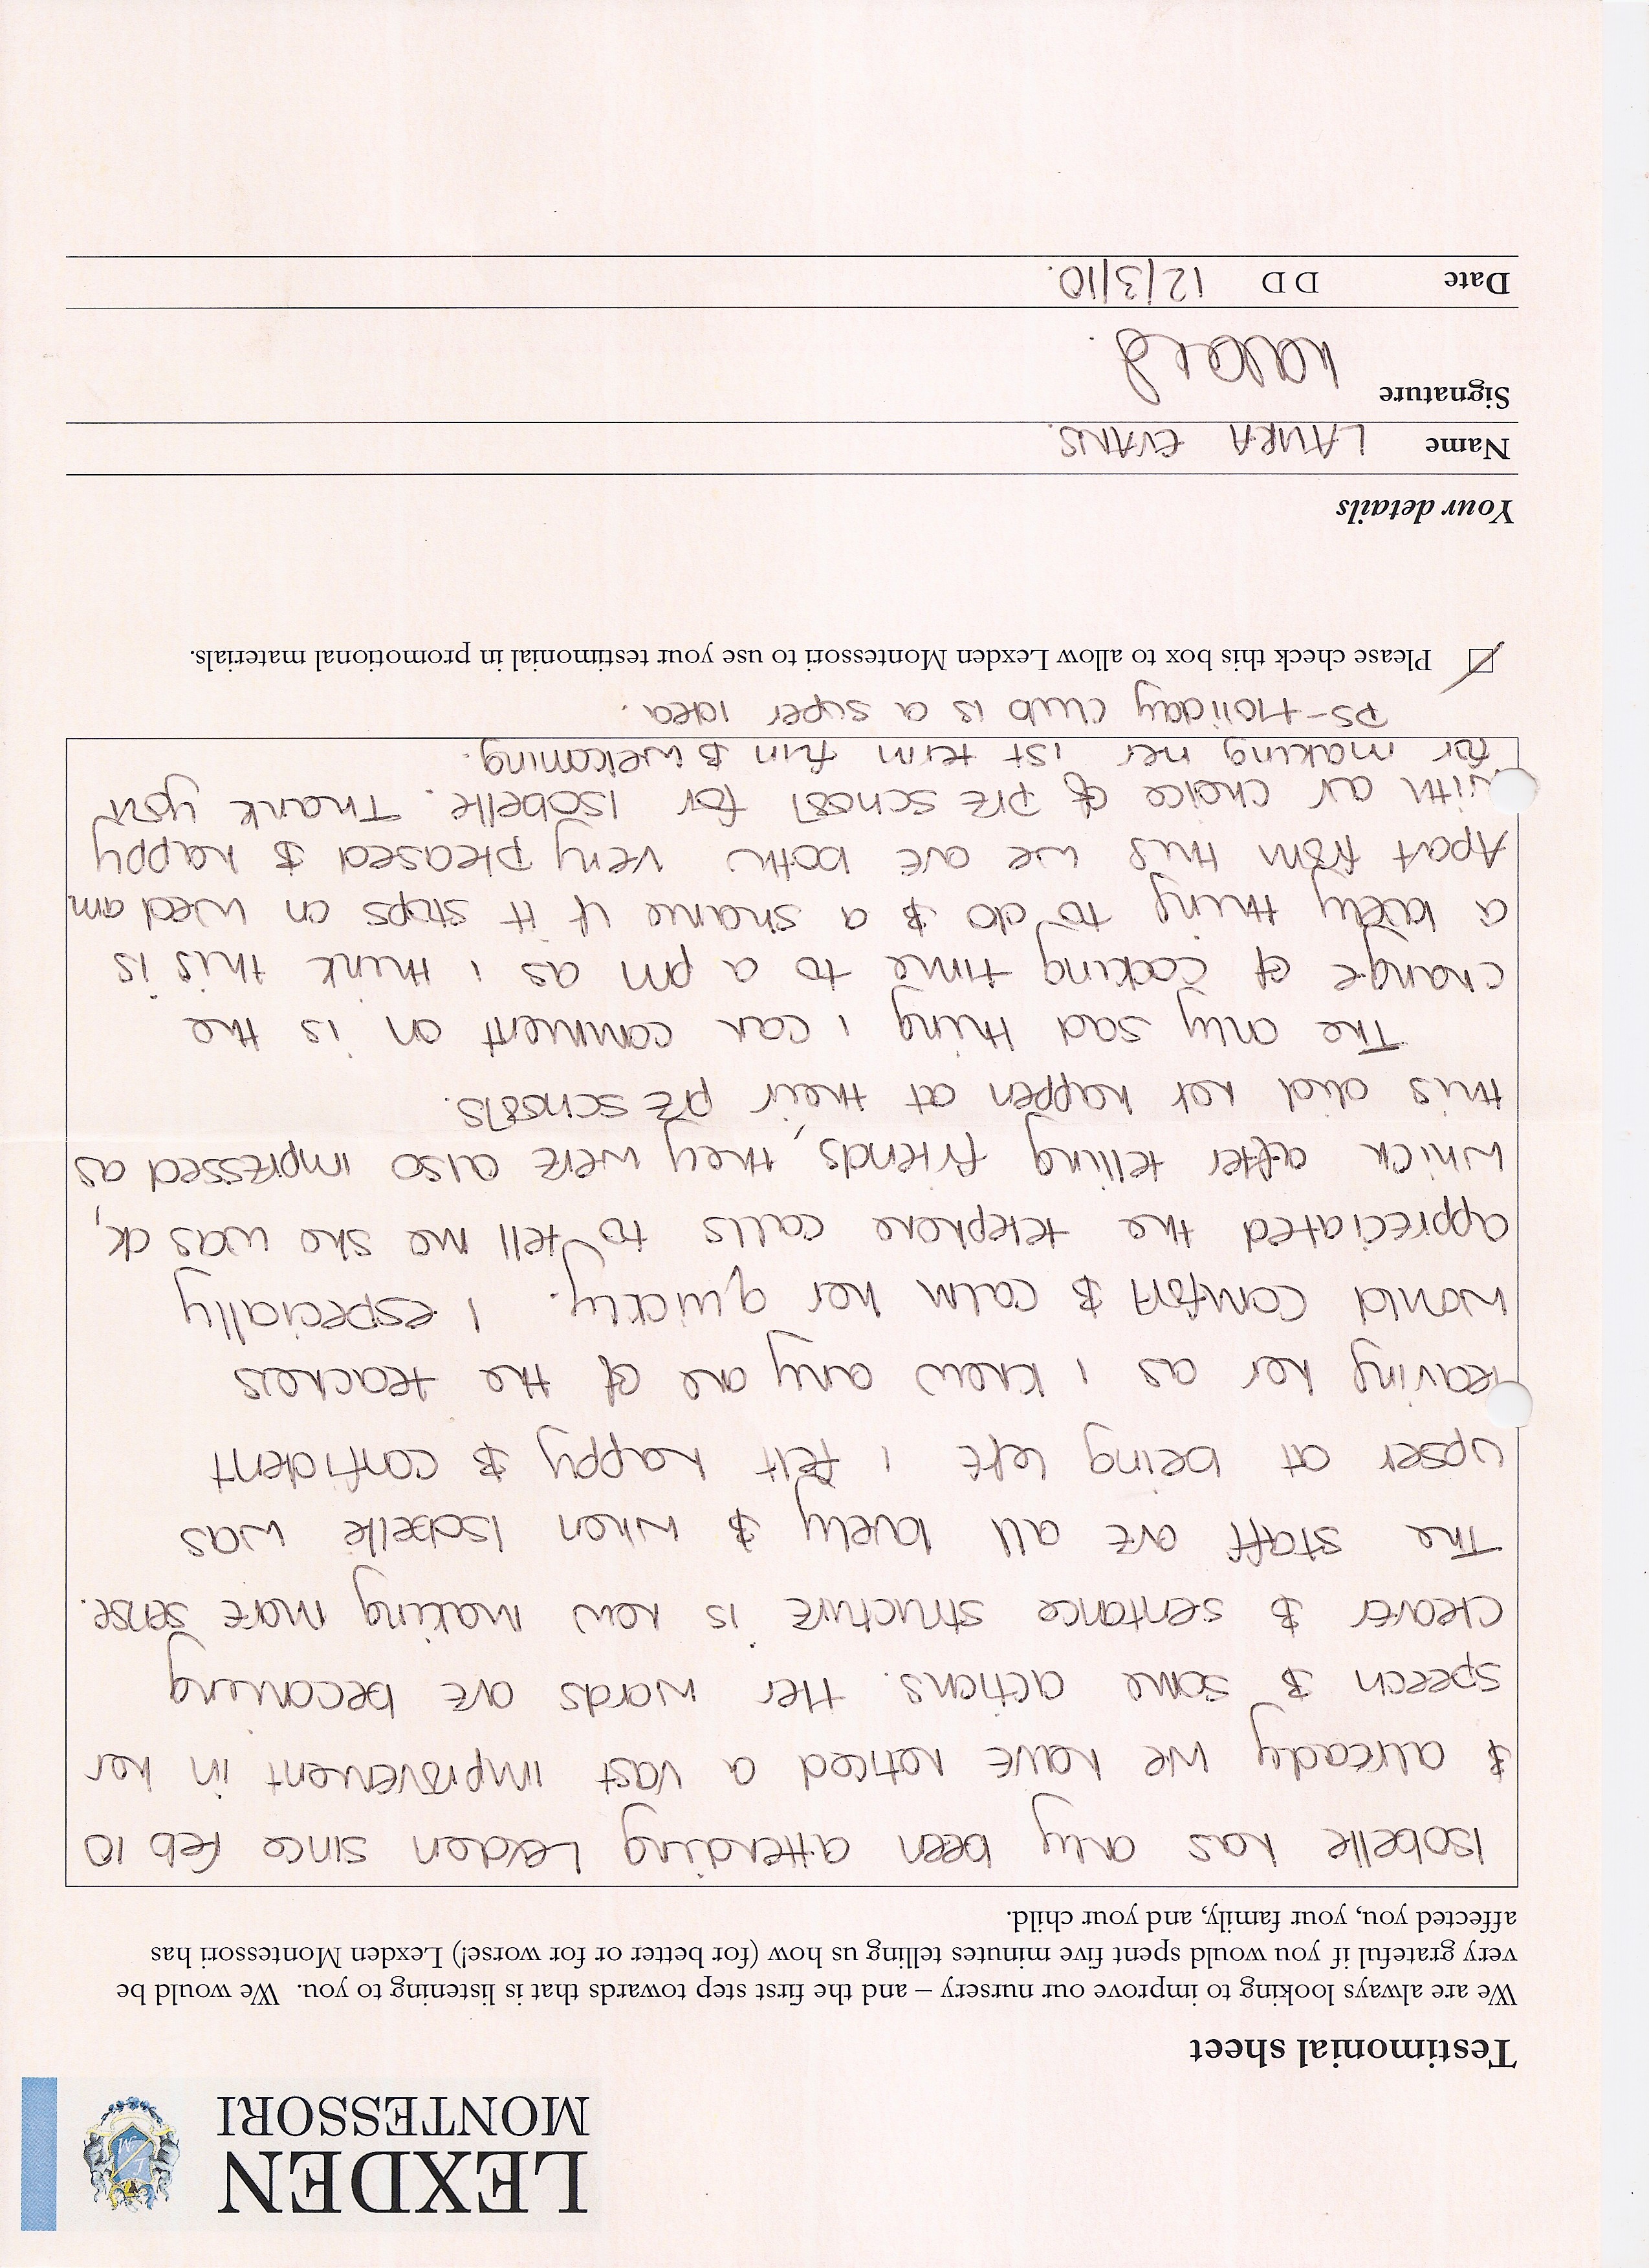 LEXDEN
MONTESSORI
Testimonial sheet
We are always looking to improve our nursery – and the first step towards that is listening to you. We would be
very grateful if you would spent five minutes telling us how (for better or for worse!) Lexden Montessori has
affected you, your family, and your child.
Isobelle has only been attending Lexden since Feb 10
& already we have noticed a vast improvement in her
speech & some actions. Her words are becoming
clearer & sentance structure is now making more sense.
The staff are all lovely & when Isobelle was
upset at being left i felt happy & confident
leaving her as i knew any one of the teachers
would comfort & calm her quickly. I especially
appreciated the telephone calls to tell me she was ok,
which after telling friends, they were also impressed as
this did not happen at their pre schools.
The only sad thing i can comment on is the
change of cooking time to a pm as i think this is
a lovely thing to do & a shame if it stops on wed am
Apart from this we are both very pleased & happy
with our choice of pre school for Isobelle. Thank you
for making her 1st term fun & welcoming.
PS-Holiday club is a super idea.
Please check this box to allow Lexden Montessori to use your testimonial in promotional materials.
Your details
Name LAURA EVANS.
Signature
Date DD 12/3/10.